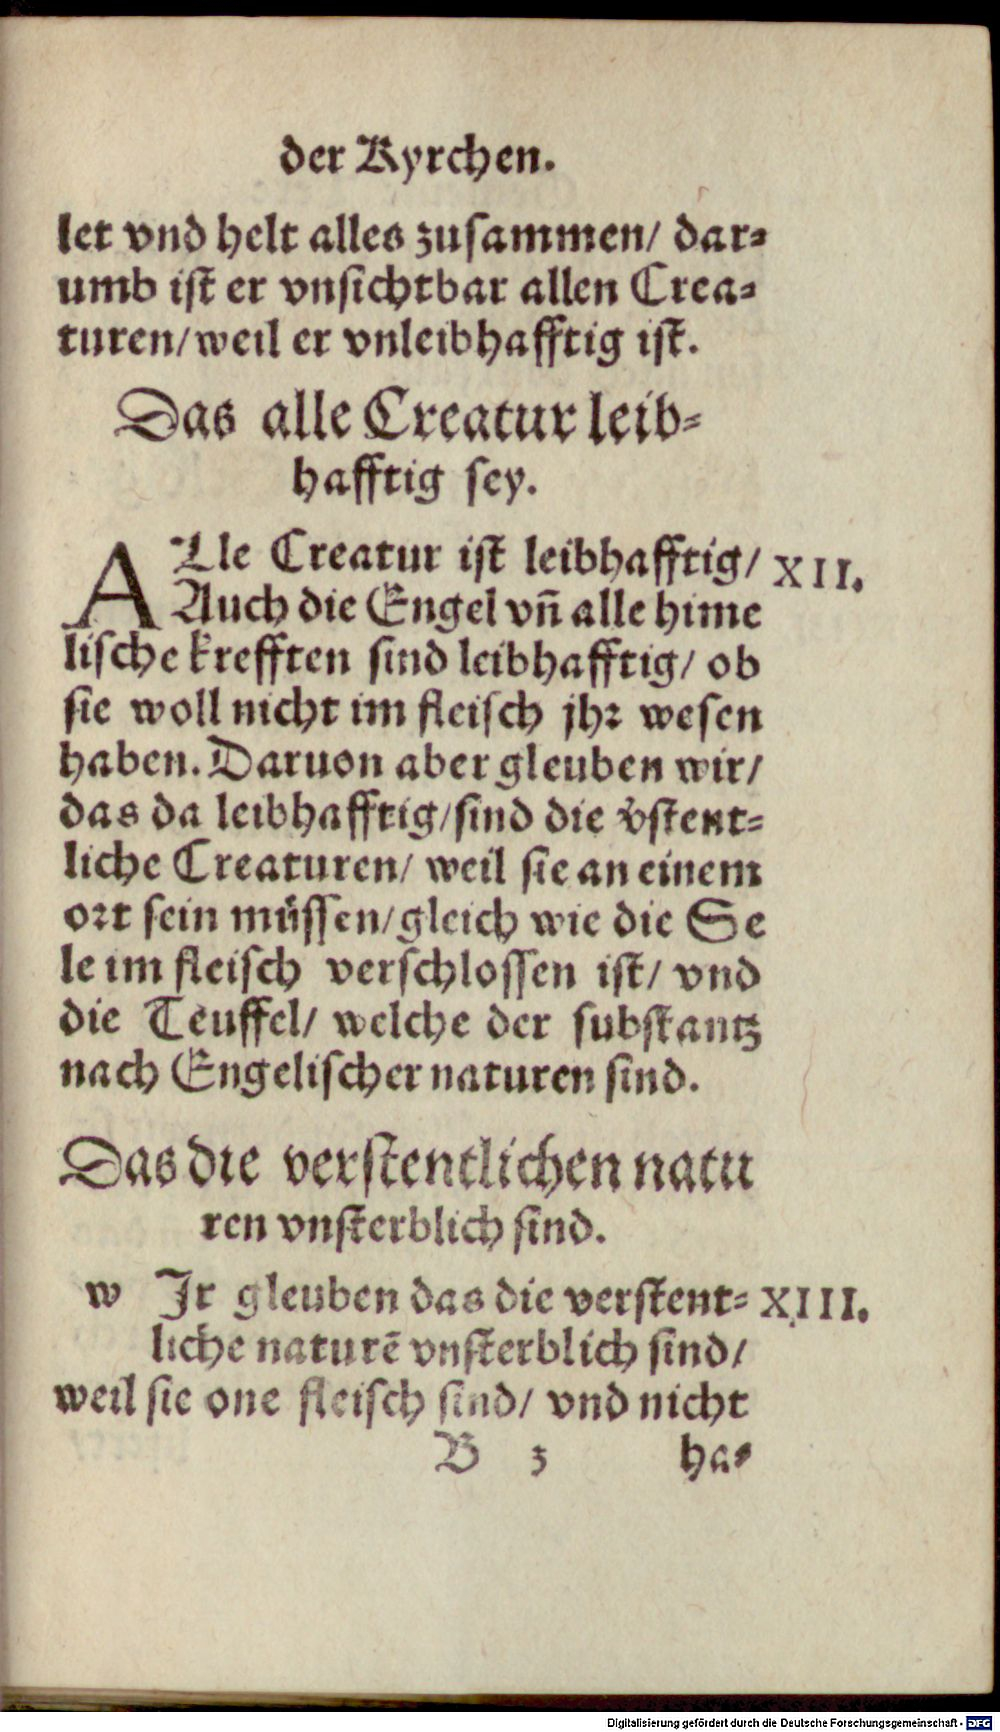 der Kyrchen.
let vnd helt alles zusammen/ dar⸗
umb ist er vnsichtbar allen Crea⸗
turen/weil er vnleibhafftig ist.
Das alle Creatur leib⸗
hafftig sey.
ALle Creatur ist leibhafftig/ XII.
Auch die Engel vñ alle hime
lische krefften sind leibhafftig/ ob
sie woll nicht im fleisch jhr wesen
haben. Daruon aber gleuben wir/
das da leibhafftig/sind die v̓stent⸗
liche Creaturen/ weil sie an einem
ort sein müssen/gleich wie die Se
le im fleisch verschlossen ist/ vnd
die Teuffel/ welche der substantz
nach Engelischer naturen sind.
Das die verstentlichen natu
ren vnsterblich sind.
wJr gleuben das die verstent⸗ XIII.
liche naturē vnsterblich sind/
weil sie one fleisch sind/ vnd nicht
B 3 ha⸗
Digitalisierung gefördert durch die Deutsche Forschungsgemeinschaft - DFG